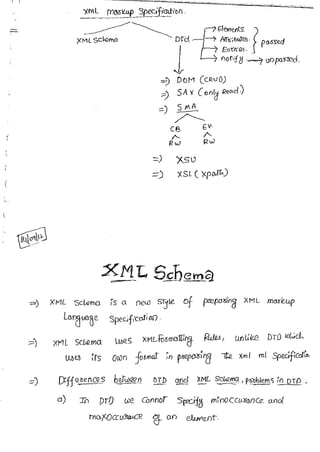 xml markup Specification.
XML Schema
DTD
Elements
Attributes
Entities
passed
notify → unparsed.
=) DOM (CRUD)
=) SAX (only Read)
=) SMA
CB EV
RW RW
=)
=) XSL (Xpath)
XML Schema
=) XML Schema is a new style of preparing XML markup
Language Specification.
=) XML Schema uses XML formatting Rules, unlike DTD which
uses its own format in preparing The xml ml Specification
=) Differences between DTD and XML Schema, problems in DTD.
a) In DTD we cannot Specify minoccurance and
maxoccurance of an element.